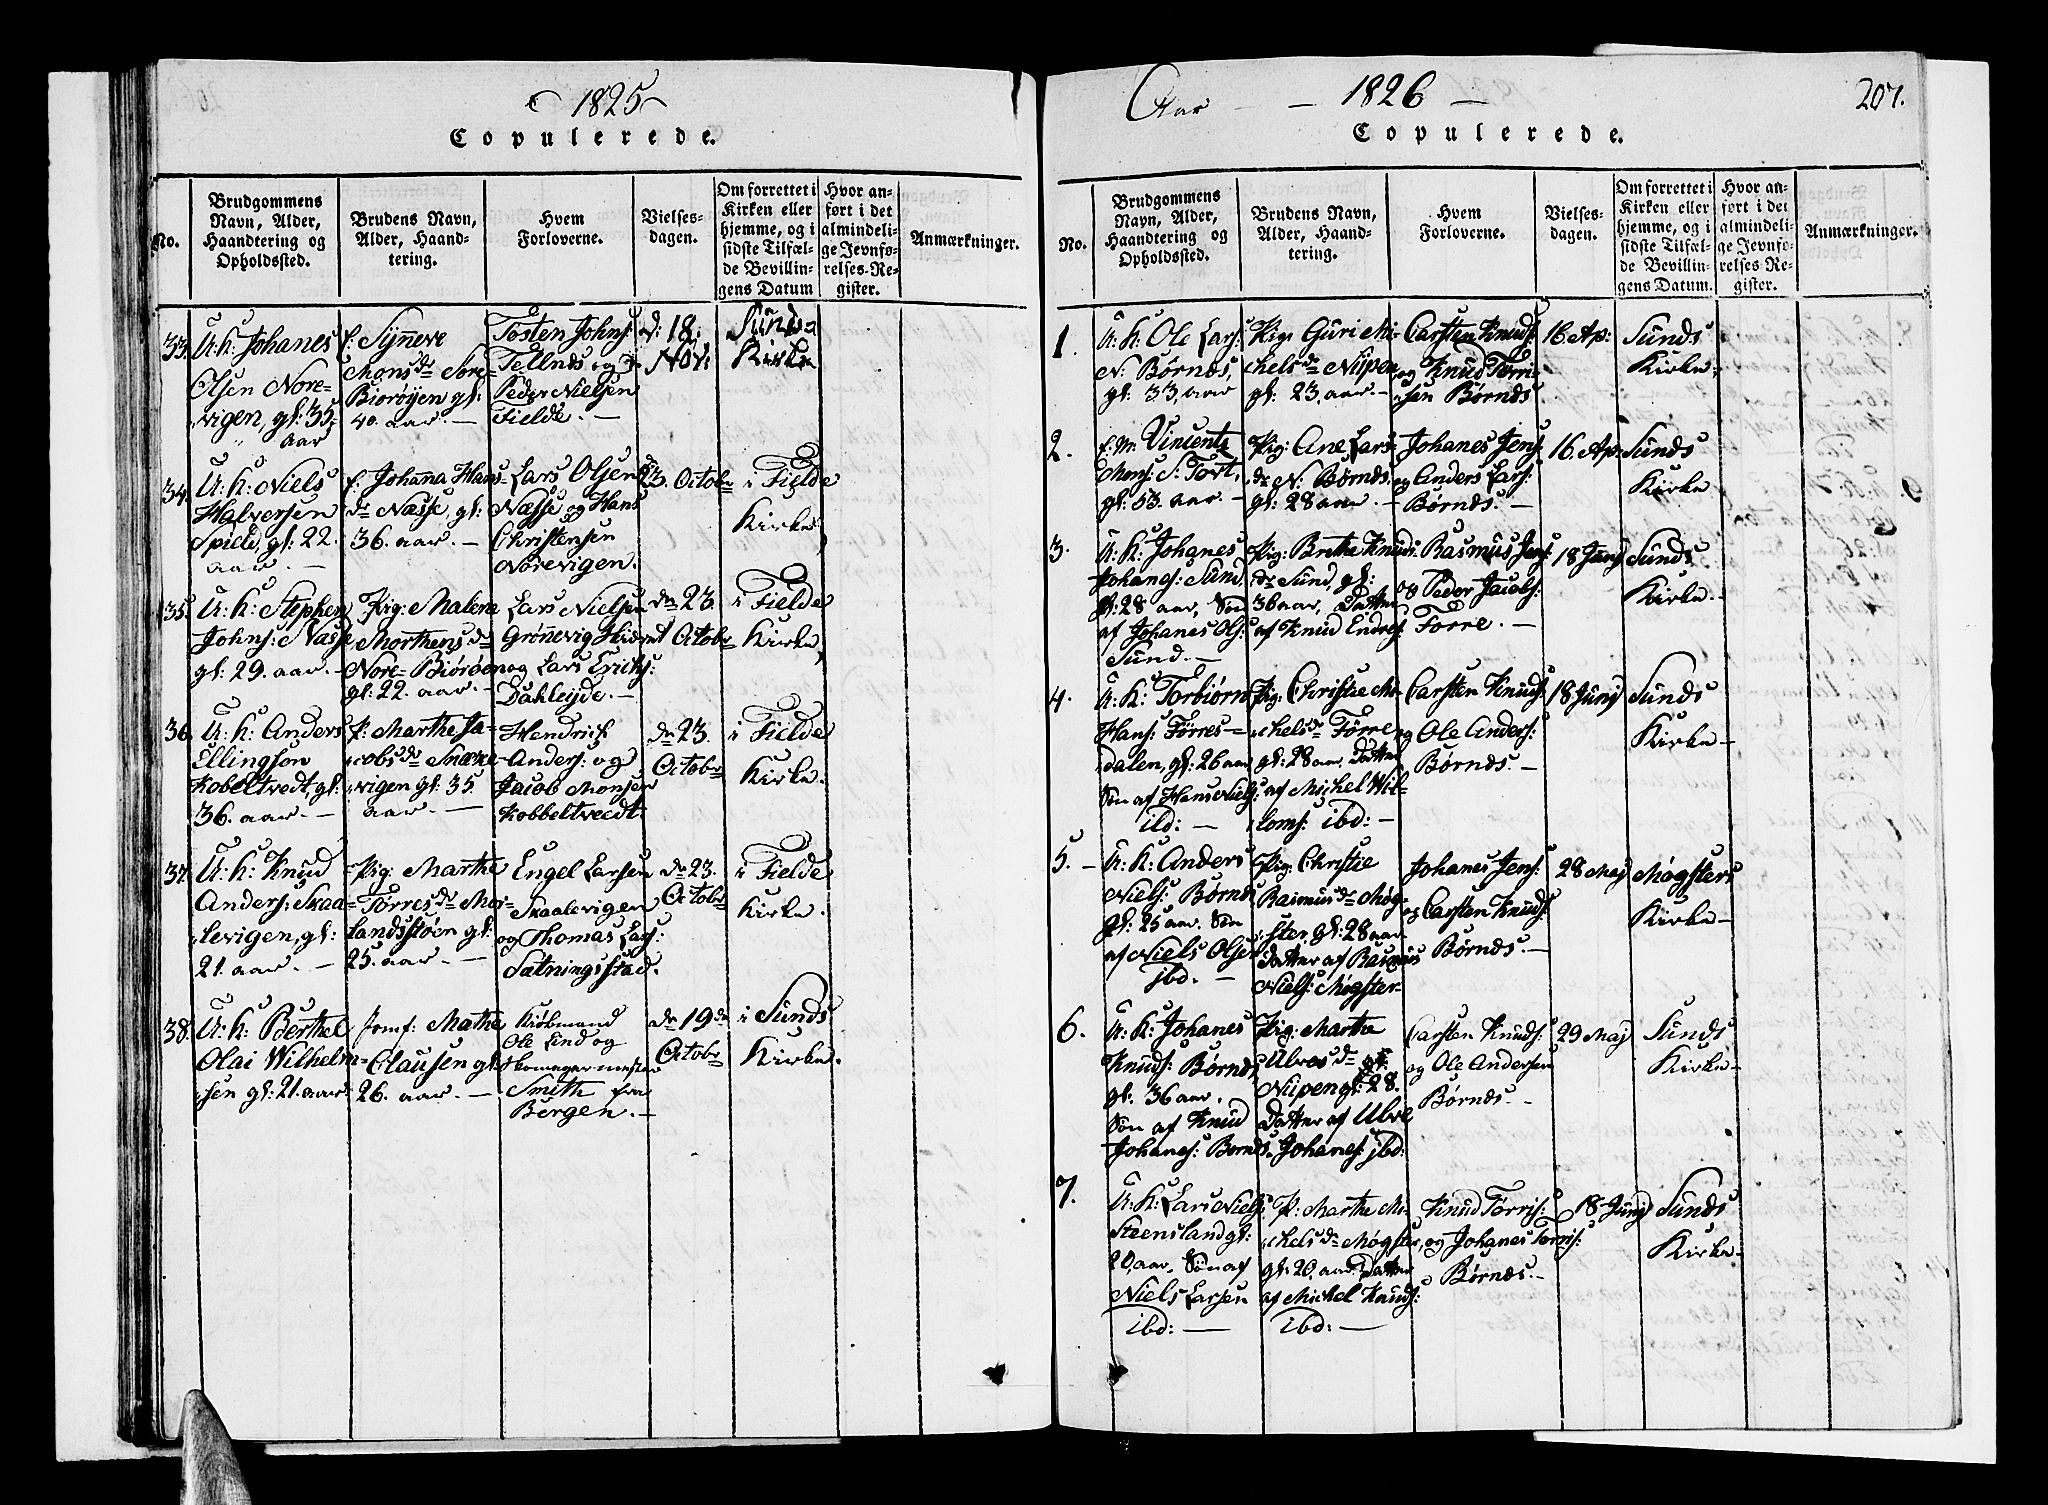 1825
Copulerede.
No.
Brudgommens
Navn, Alder,
Haandtering og
Opholdssted.
Brudens Navn,
Alder, Haand-
tering.
Hvem
Forloverne.
Vielses-
dagen.
Om forrettet i
Kirken eller
hjemme, og i
sidste Tilfæl-
de Bevillin-
gens Datum
Hvor an-
ført i det
almindeli-
ge Jevnfø-
relses-Re-
gister.
Anmærkninger.
33.
U: K: Johanes
Olsen Nore-
vigen, gl: 35.
aar
f: Synneve
Mons dr Nore-
Biorøyen gl:
40. aar. —
Tosten Johns:
Tellnes og
Peder Nielsen
Fielde. —
d: 18.
Nov:
Sunds
Kirke
34.
U: K: Niels
Halversen
Spield, gl: 22.
aar. —
f: Johanna Hans
dr Næsse, gl:
36. aar. —
Lars Olsen
Næsse og Hans
Christensen
Norevigen.
23. Octobr
i Fielde
Kirke
35.
U: K: Stephen
Johns: Næsse
gl: 29. aar. —
Pig: Malene
Morthens dr
Nore-Biørøen
gl: 22. aar. —
Lars Nielsen
Grønevig
og Lars Erichs:
Dahleyde. —
dn 23.
Octobr
i Fielde
Kirke
36.
U: K: Anders
Ellingson
Kobeltvedt, gl:
36. aar. —
P: Marthe Ja-
cobs dr Snære-
vigen gl: 35.
aar. —
Hendrich
Anders: og
Jacob Monsen
Kobbeltvedt.
dn 23.
Octobr
i Fielde
Kirke.
37.
U: K: Knud
Anders: Skaa-
levigen, gl:
21. aar. —
Pig: Marthe
Torres dr Mor-
landsstøen gl:
25. aar. —
Engel Larsen
Skaalevigen
og Thomas Lars:
Satningsstad.
dn 23.
Octobr
i Fielde
Kirke.
38.
U: K: Berthel
Olai Wilhelm-
sen gl: 21. aar.
Jomf: Mathe
Clausen gl:
26. aar. —
Kiøbmand
Ole Lind og
Skomagermester
Smith fra
Bergen. —
dn 19 de
Octobr
i Sunds
Kirke.
Aar — — 1826 —
207.
Copulerede.
No.
Brudgommens
Navn, Alder,
Haandtering og
Opholdssted.
Brudens Navn,
Alder, Haand-
tering.
Hvem
Forloverne.
Vielses-
dagen.
Om forrettet i
Kirken eller
hjemme, og i
sidste Tilfæl-
de Bevillin-
gens Datum.
Hvor an-
ført i det
almindeli-
ge Jevnfø-
relses-Re-
gister.
Anmærkninger.
1.
U: K: Ole Lars:
N: Børnes,
gl: 33. aar
Pig: Guri Mi-
chels dr Niipen
gl: 23. aar. —
Carsten Knuds:
og Knud Torri-
sen Børnes
16. Ap:
Sunds
Kirke.
2.
f: M: Vincents
Mons: S: Tort,
gl: 53. aar —
Pig: Ane Lars
dr N: Børnes,
gl: 28 aar. —
Johanes Jens:
og Anders Lars:
Børnes. —
16. Ap:
Sunds
Kirke
3.
U: K: Johanes
Johanes: Sund.
gl: 28 aar, Søn
af Johanes Ols:
Sund. —
Pig: Brithe Knuds
dr Sund, gl:
36 aar, Datter
af Knud Endres:
Rasmus Jens:
og Peder Jacobs:
Torre. —
18 Junj
Sunds
Kirke. —
4.
U: K: Torbiørn
Hans: Førres-
dalen, gl: 26 aar
Søn af Hans Niels:
ibd: —
Pig: Christie Mi-
chels dr Førre
gl: 28 aar. Datter
af Michel Wil-
loms: ibd: —
Carsten Knuds:
og Ole Anders:
Børnes. —
18 Junj
Sunds
Kirke —
5. —
U: K: Anders
Niels: Børnes
gl: 25 aar. Søn
af Niels Olsen
ibd. —
Pig: Christie
Rasmus dr Møg-
ster, gl: 28 aar.
Datter af Rasmus
Niels: Møgster-
Johanes Jens:
og Carsten Knuds:
Børnes. —
28 Maj
Møgsters
Kirke —
6.
U: K: Johanes
Knuds: Børnes,
gl: 36 aar.
Søn af Knud
Johanes: Børnes.
Pig: Marthe
Ulves dr
Niipen gl: 28.
Datter af Ulve
Johanes: ibd:
Carsten Knuds:
og Ole Andersen
Børnes. —
29 Maj
Sunds
Kirke —
7.
U: K: Lars Niels:
Steensland gl:
20, aar. Søn af
Niels Larsen
ibd: —
P: Marthe Mi-
chels dr Møgster,
gl: 20, aar. Datter
af Michel Knuds:
ibd: —
Knud Torris:
og Johanes Torris:
Børnes. —
18 Junj
Sunds
Kirke —